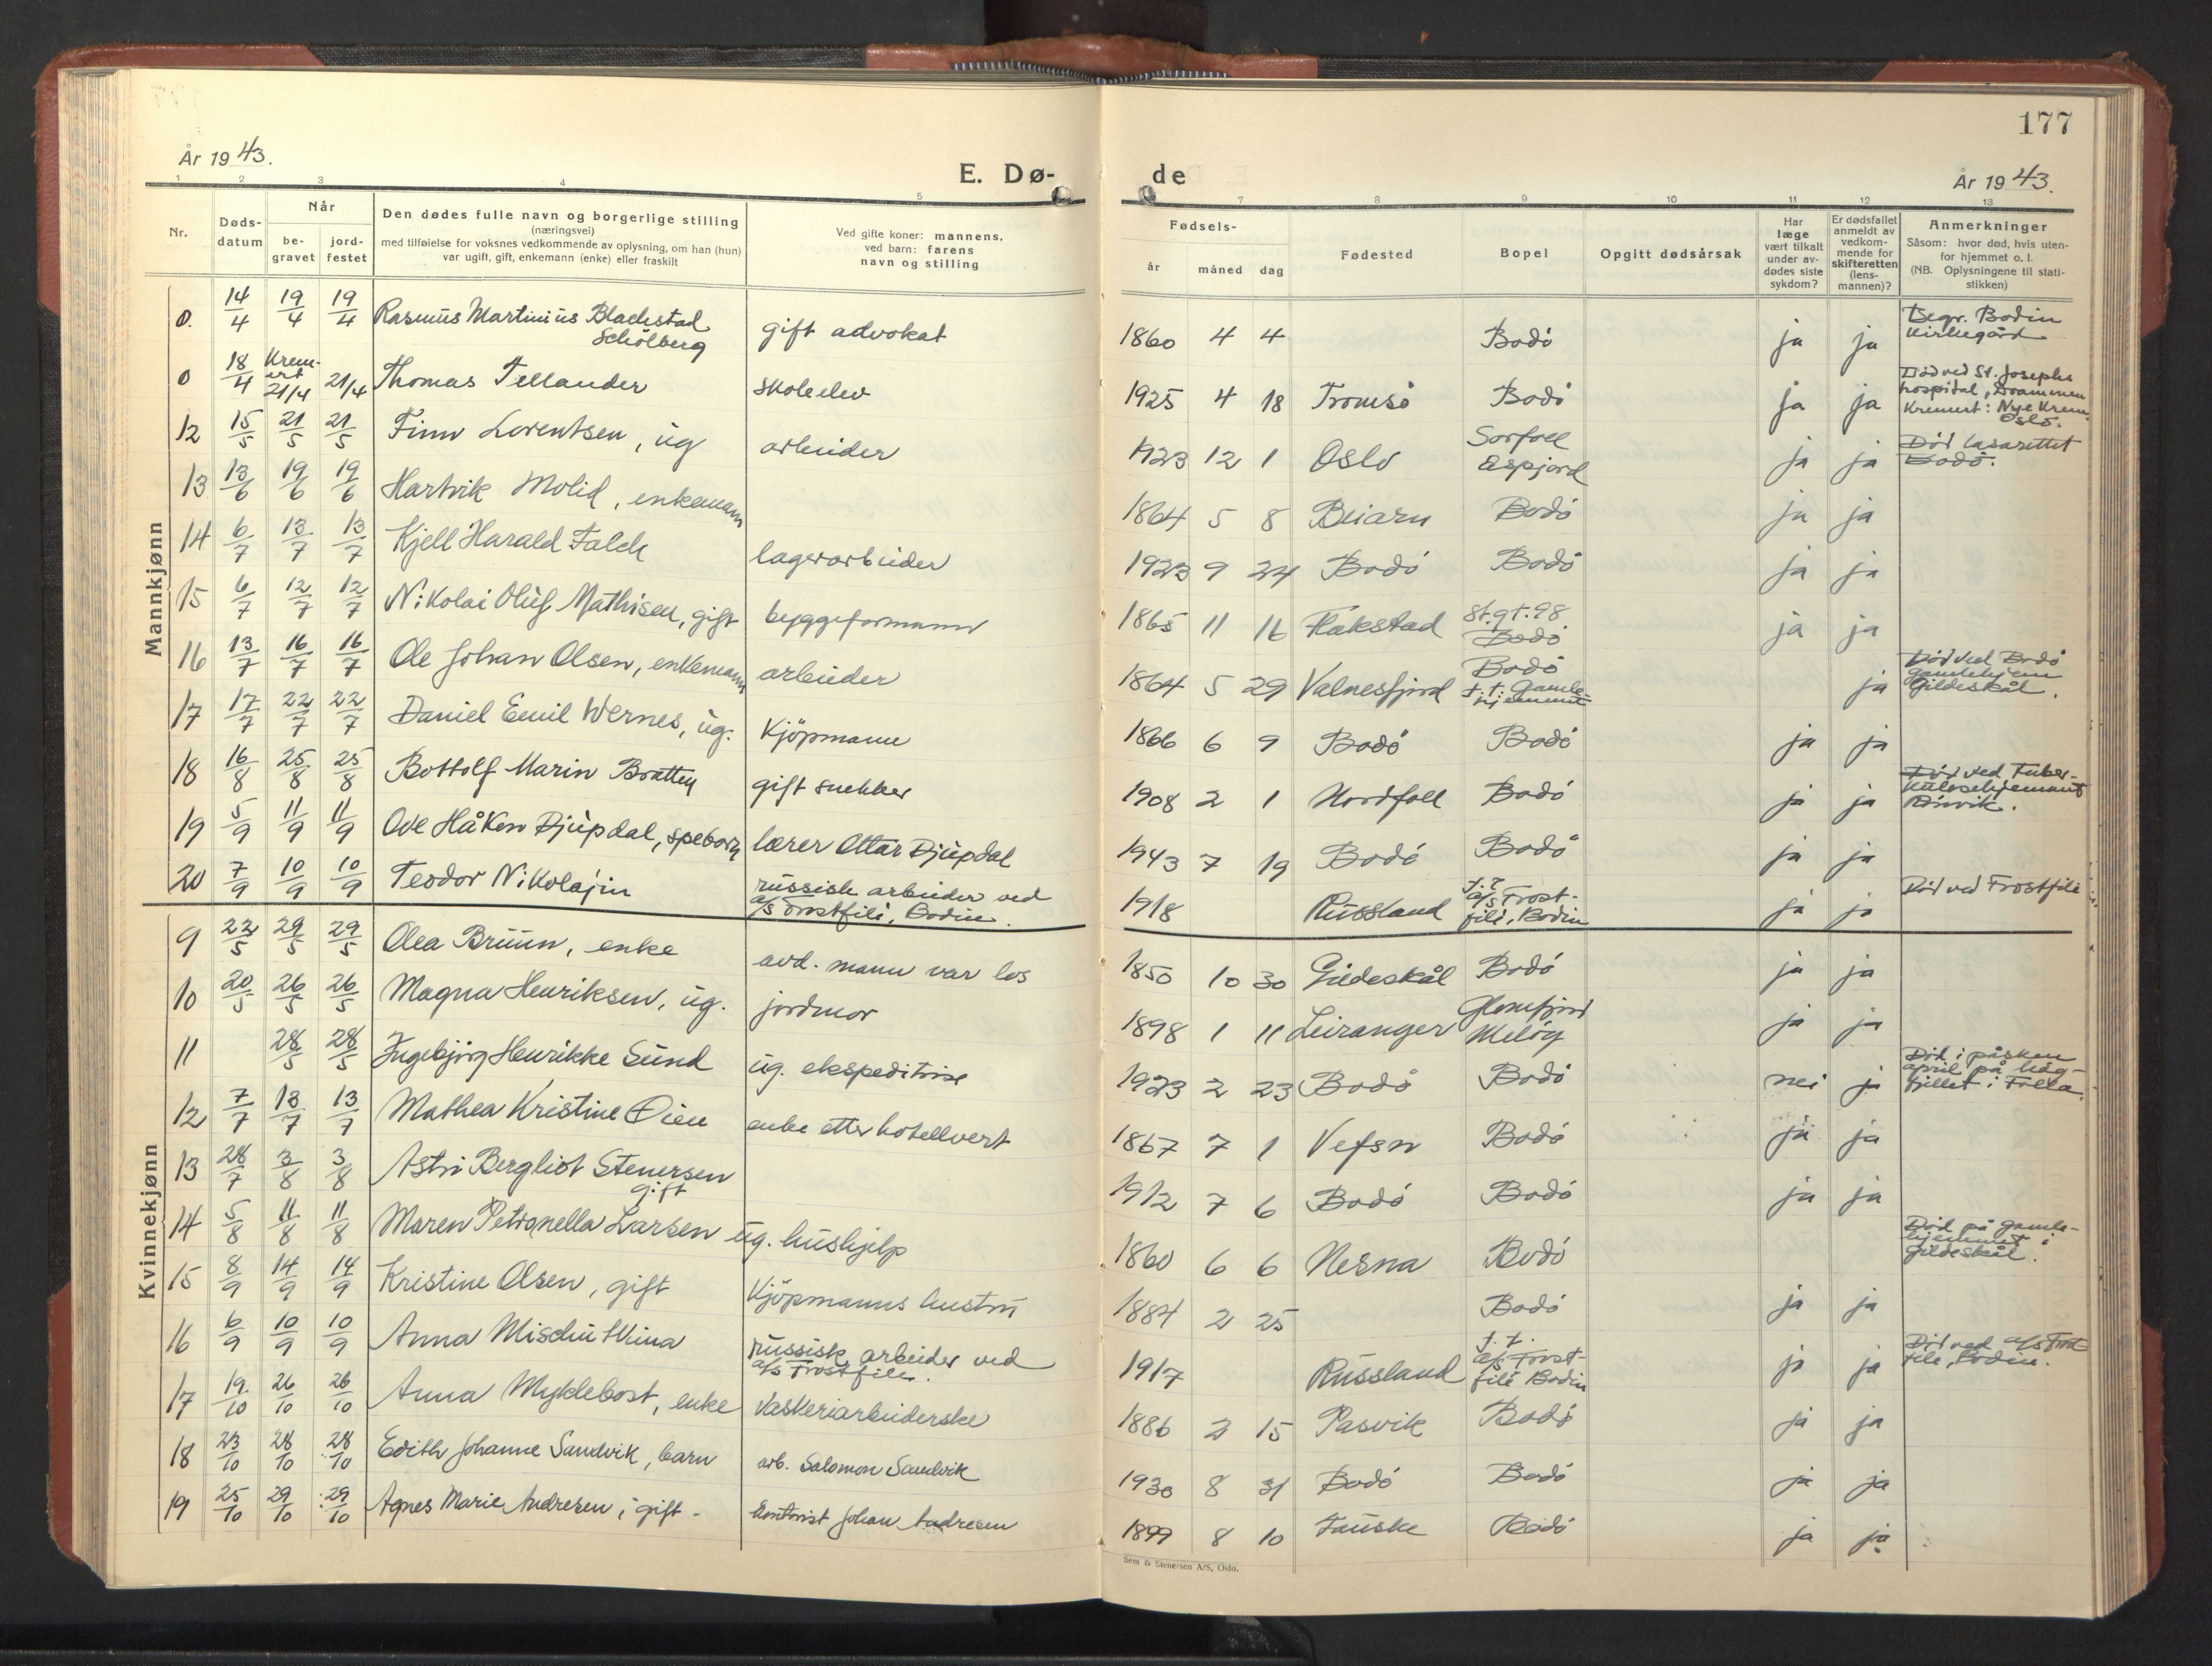 177
År 1943.
E. Dø-
de
År 1943.
1 2 3 4 5
7 8 9 10 11 12 13
Nr.
Døds-
datum
Når
be-
gravet
jord-
festet
Den dødes fulle navn og borgerlige stilling
(næringsvei)
med tilføielse for voksnes vedkommende av oplysning, om han (hun)
var ugift, gift, enkemann (enke) eller fraskilt
Ved gifte koner: mannens,
ved barn: farens
navn og stilling
Fødsels-
år måned dag
Fødested
Bopel
Opgitt dødsårsak
Har
læge
vært tilkalt
under av-
dødes siste
sykdom?
Er dødsfallet
anmeldt av
vedkom-
mende for
skifteretten
(lens-
mannen)?
Anmerkninger
Såsom: hvor død, hvis uten-
for hjemmet o. l.
(NB. Oplysningene til stati-
stikken)
Mannkjønn
0. 14/4 19/4 19/4 Rasmus Martinius Blackstad
Schölberg
gift advokat 1860 4 4 Bodö ja ja
Begr. Bodin
Kirkegård
0 18/4 Krem-
ert
21/4 21/4 Thomas Tellander skoleelev 1925 4 18 Tromsö Bodö ja ja
Död ved St. Josephs
hospital, Drammen
Kremert: Nye Krem.
Oslo.
12 15/5 21/5 21/5 Finn Lorentsen, ug arbeider 1923 12 1 Oslo Sorfoll
Espjord ja ja
Död lasarettet
Bodö.
13 13/6 19/6 19/6 Hartvik Molid, enkemann 1864 5 8 Beiarn Bodö ja ja
14 6/7 13/7 13/7 Kjell Harald Falch lagerarbeider 1923 9 24 Bodö Bodö ja ja
15 6/7 12/7 12/7 Nikolai Oluf Mathisen, gift byggeformann 1865 11 16 Flakstad St.gt.98.
Bodö ja ja
16 13/7 16/7 16/7 Ole Johan Olsen, enkemann arbeider 1864 5 29 Valnesfjord Bodö
t.t. Gamle-
hjemmet ja
Död ved Bodö
gamlehjem
Gildeskål.
17 17/7 22/7 22/7 Daniel Emil Wernes, ug. Kjöpmann 1866 6 9 Bodö Bodö ja ja
18 16/8 25/8 25/8 Bottolf Marin Bratten gift snekker 1908 2 1 Nordfoll Bodö ja ja
Död ved Tuber-
kulosehjemmet
19 5/9 11/9 11/9 Ove Håken Djupdal, spebarn lærer Ottar Djupdal 1943 7 19 Bodö Bodö ja ja
20 7/9 10/9 10/9 Teodor Nikolajin russisk arbeider ved
a/s Frostfili, Bodin.
1918 Russland t.t.
a/s Frost-
fili, Bodin ja ja
Död ved Frostfili
Kvinnekjønn
9 22/5 29/5 29/5 Olea Bruun, enke avd. mann var los 1850 10 30 Gildeskål Bodö ja ja
10 20/5 26/5 26/5 Magna Henriksen, ug. jordmor 1898 1 11 Leiranger Glomfjord
Melöy ja ja
11 28/5 28/5 Ingebjörg Henrikke Sund ug. ekspeditrise 1923 2 23 Bodö Bodö nei ja
Död i påsken
april på hög-
fjellet i Folla.
12 7/7 13/7 13/7 Mathea Kristine Öien enke etter hotellvert 1867 7 1 Vefsn Bodö ja ja
13 28/7 3/8 3/8 Astri Bergliot Stenersen
gift
1912 7 6 Bodö Bodö ja ja
14 5/8 11/8 11/8 Maren Petronella Larsen ug. hushjelp 1860 6 6 Nesna Bodö
Död på gamle-
hjemmet i
Gildeskål.
15 8/9 14/9 14/9 Kristine Olsen, gift Kjöpmanns hustru 1884 2 25 Bodö ja ja
16 6/9 10/9 10/9 Anna russisk arbeider ved
a/s Frostfili.
1917 Russland t.t.
a/s Frost-
fili Bodin ja ja
Död ved a/s Frost
fili, Bodin.
17 19/10 26/10 26/10 Anna Myklebost, enke Vaskeriarbeiderske 1886 2 15 Pasvik Bodö ja ja
18 23/10 28/10 28/10 Edith Johanne Sandvik, barn arb. Salomon Sandvik 1930 8 31 Bodö Bodö ja ja
19 25/10 29/10 29/10 Agnes Marie Andresen, gift - Kontorist Johan Andresen 1899 8 10 Fauske Bodö ja ja
Sem & Stenersen A/S, Oslo.